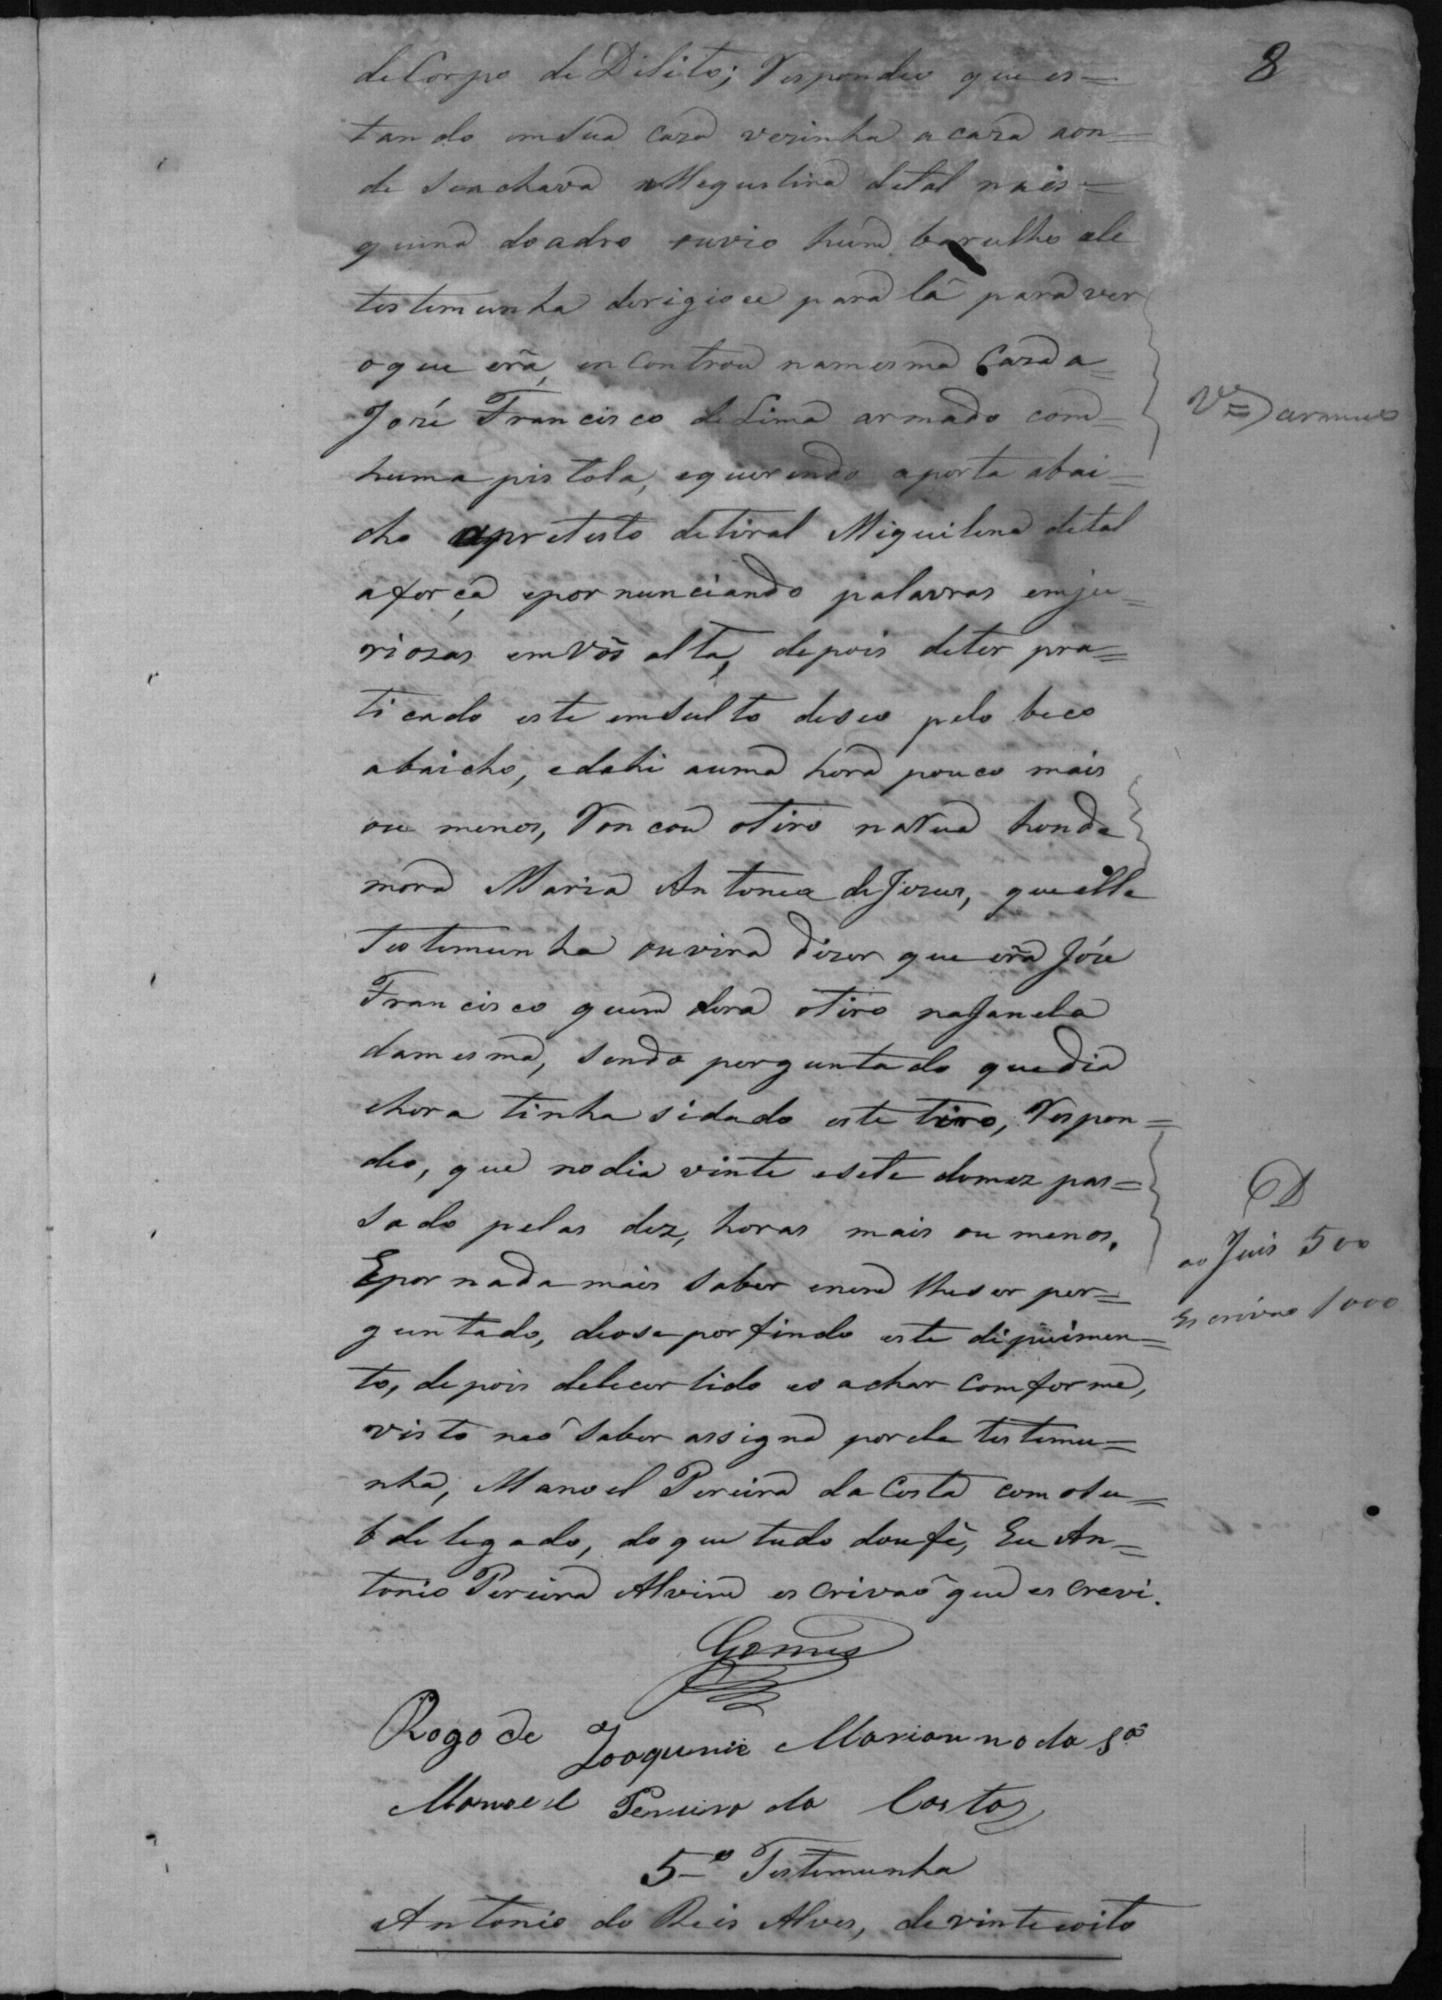 8
de Corpo de Dilito; Respondeo que es=
tando em sua casa vezinha a casa aon=
de se achava Meguelina de tal na es=
quina do adro ouvio hum barulho ele
testemunha derigioce para lá para ver
o que era, encontrou na mesma Casa a=
José Francisco de Lima armado com=
huma pistola, e querendo a porta abai=
cho a pretesto de tiral Miquilina de tal
a força e pornunciando palavras emju=
riozas em Vós alta, depois de ter pra=
ticado este emsulto deseo pelo beco
abaicho, e dahi a uma hora pouco mais
ou menos, Roncou o tiro na Rua honde
mora Maria Antonia de Jezus, que elle
testemunha ouvira dizer que era José
Francisco quem dera o tiro na Janela
da mesma, sendo perguntado que dia
e hora tinha sidado este tiro, Respon=
deo, que no dia vinte e sete do mez pas=
sado pelas dez, horas mais ou menos.
E por nada mais saber enem lhe ser per=
guntado, deose por findo este dipuimen=
to, depois dele cer lido eo achar comforme,
visto naõ saber assigna por ele testemu=
nha, Manoel Pereira da Costa com o su=
bdelegado, do que tudo dou fé, Eu An=
tonio Pereira Alvim escrivaõ que escrevi.
Gomes
ao Juis 500
Escrivao 1000
Rogo de Joaquim Marianno da Sª
Manoel Pereira da Costa
5ª Testemunha
Antonio do Reis Alves, de vinte e oito